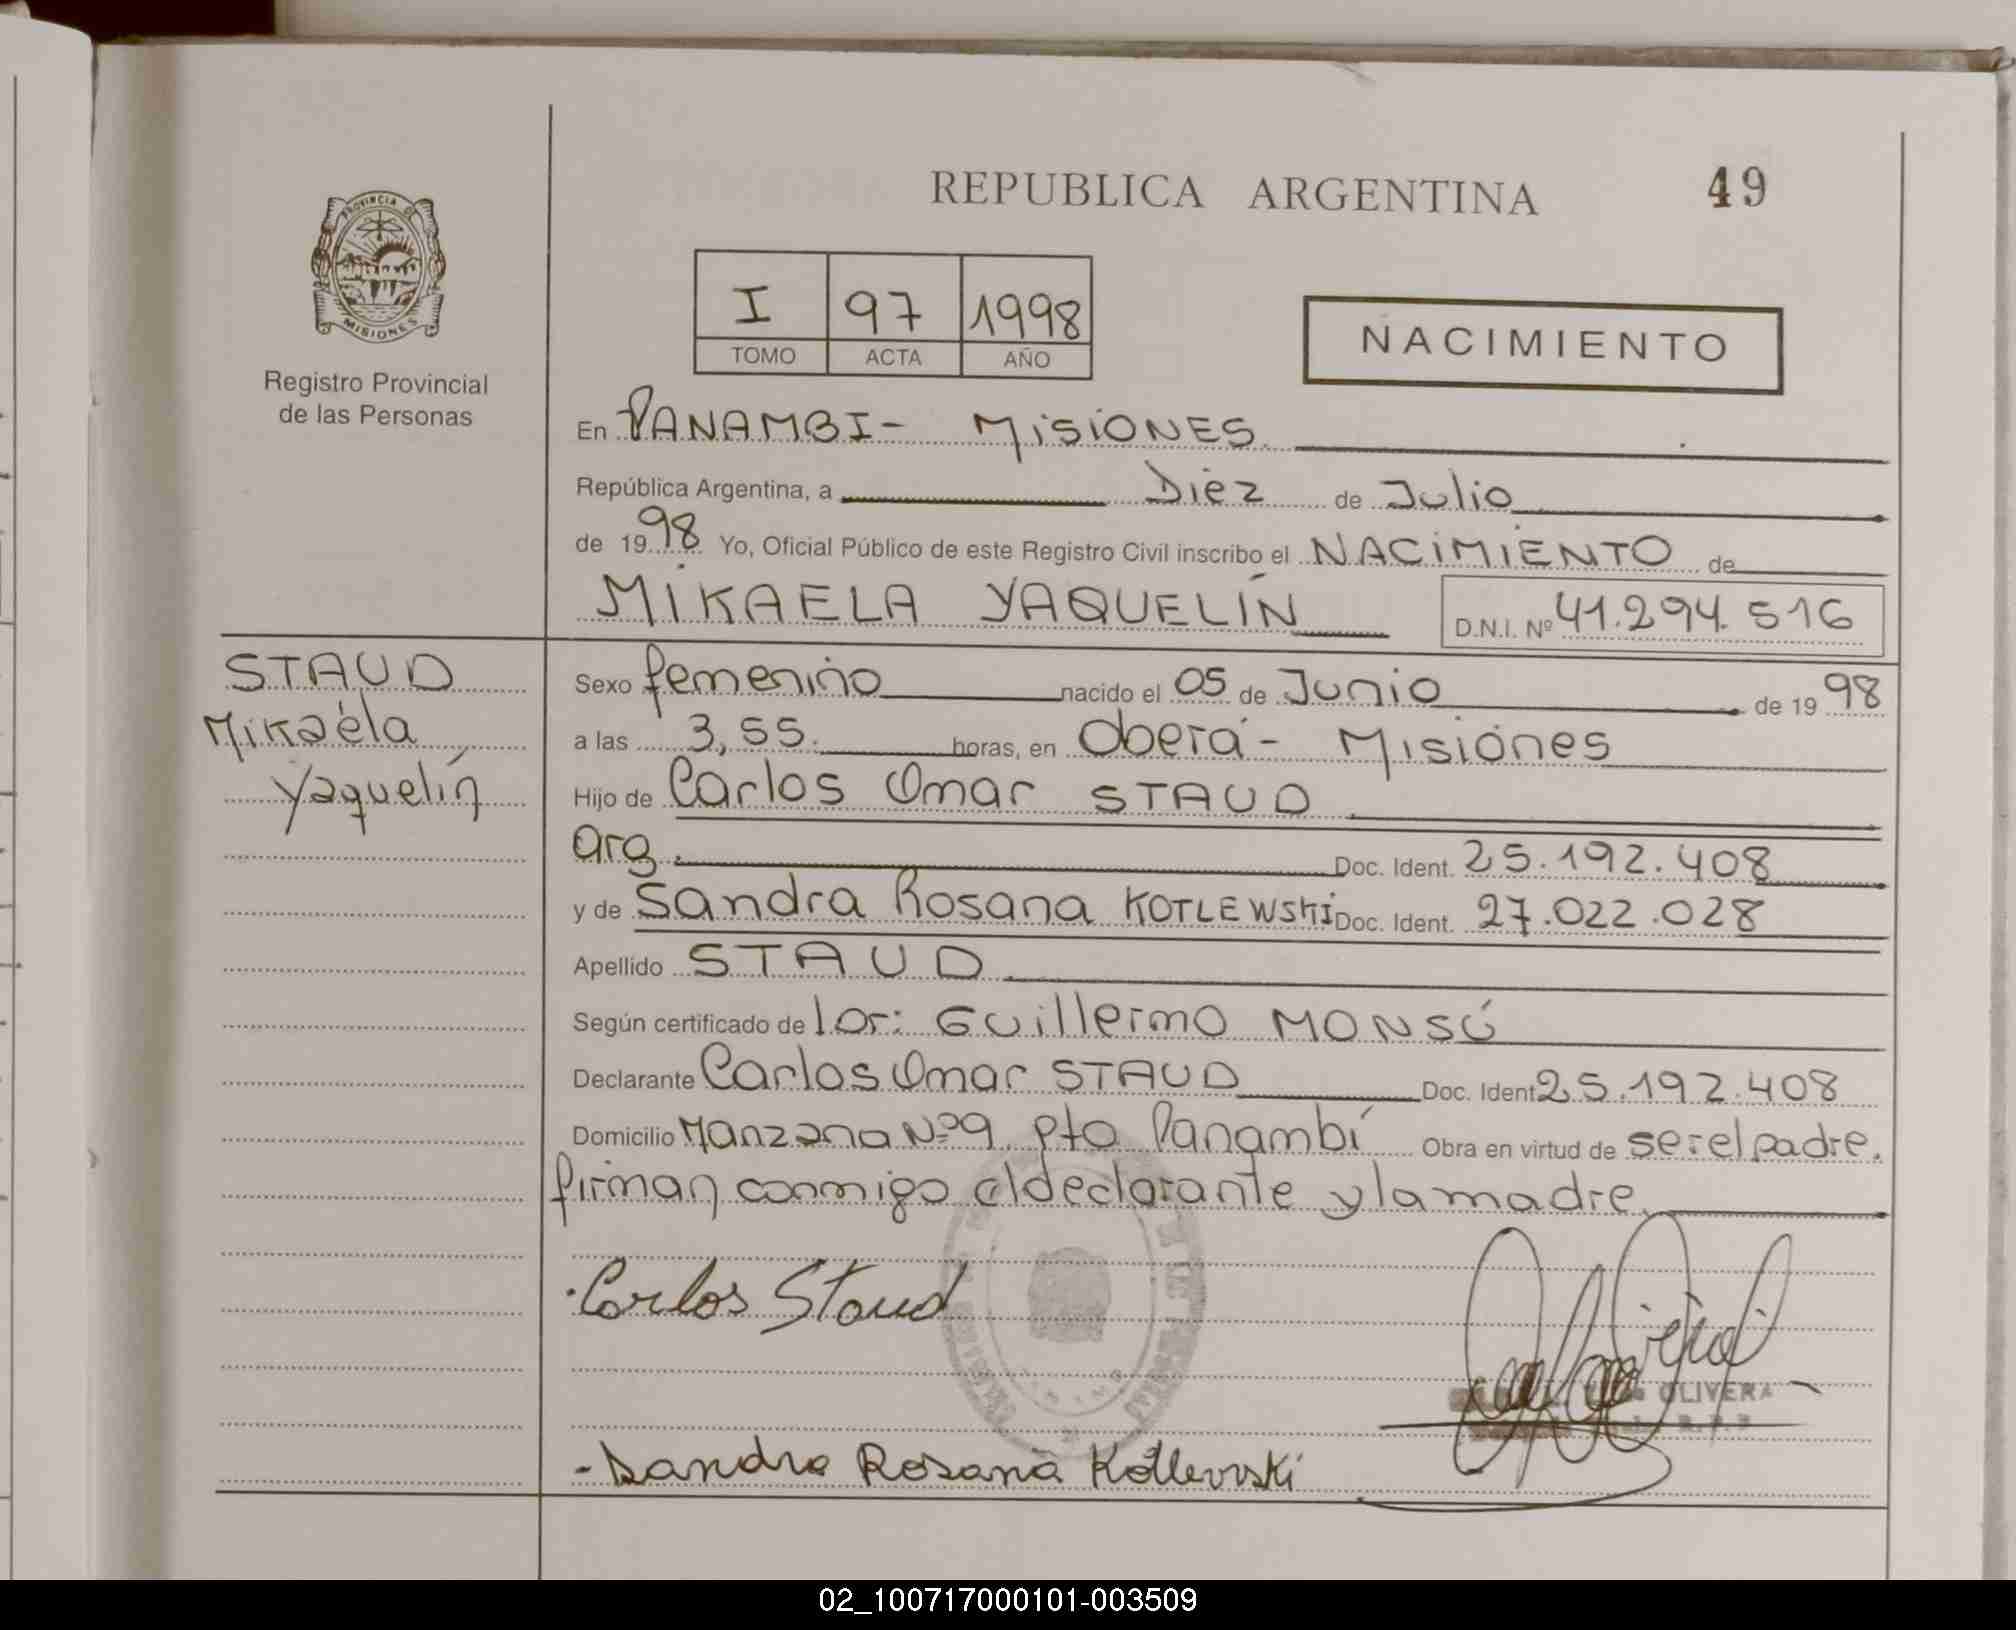 REPUBLICA ARGENTINA
49
PROVINCIA DE
MISIONES
Registro Provincial
de las Personas
I 97 1998
TOMO ACTA AÑO
NACIMIENTO
En PANAMBI - MISIONES
República Argentina, a Diez de Julio
de 1998 Yo, Oficial Público de este Registro Civil inscribo el NACIMIENTO de
MIKAELA YAQUELÍN
D.N.I. Nº 41.294.516
STAUD
Mikaela
Yaquelín
Sexo femenino nacido el 05 de Junio de 1998
a las 3,55. horas, en Oberá - Misiones
Hijo de Carlos Omar STAUD
arg. Doc. Ident. 25.192.408
y de Sandra Rosana KOTLEWSKI Doc. Ident. 27.022.028
Apellido STAUD
Según certificado de Guillermo MONSÚ
Declarante Carlos Omar STAUD Doc. Ident 25.192.408
Domicilio Manzana Nº 9 Pto Panambí Obra en virtud de ser el padre.
firman conmigo el declarante y la madre.
Carlos Staud
OLIVERA
- Sandra Rosana Kotlewski
02_100717000101-003509